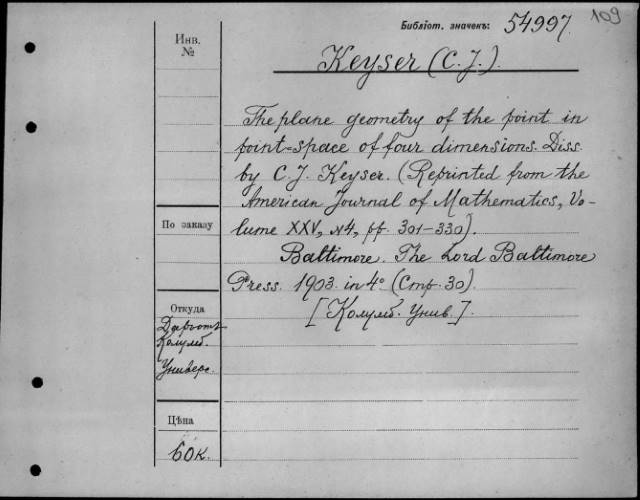 109
Библіот. значекъ: 54997.
Инв.
№
Keyser (C. J.)
The plane geometry of the point in
point-space of four dimensions. Diss.
by C. J. Keyser. (Reprinted from the
American Journal of Mathematics, Vo-
lume XXV, N4, pp. 301-330).
Baltimore. The Lord Baltimore
Press. 1903. in 4° (Стр. 30).
[Колумб. Унив.].
По заказу
Откуда
Колумб.
Универс.
Цѣна
60к.